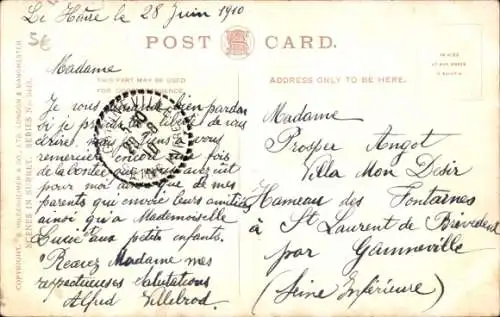 Le Havre le 28 Juin 1910
5€
POST CARD.
THIS PART MAY BE USED
FOR CORRESPONDENCE
ADDRESS ONLY TO BE HERE.
COPYRIGHT, S. HILDESHEIMER & CO., LTD., LONDON & MANCHESTER
SCENES IN SURREY. SERIES No.
Madame
Je vous demande bien pardon
si je prends la liberté de vous
écrire, mais je tiens à vous
remercier encore une fois
de la bonté que vous avez eu
pour moi ainsi que de mes
parents qui envoie leurs amitiés
ainsi qu'a Mademoiselle
Lucie aux petits enfants.
Recevez Madame mes
respectueuses salutations
Alfred Villebrod.
Madame
Prosper Angot
Villa Mon Désir
Hameau des Fontaines
à St Laurent de Brévedent
par Gainneville
(Seine Inférieure)